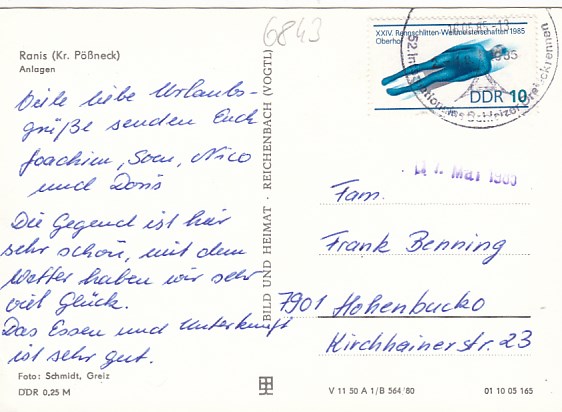 6843
Ranis (Kr. Pößneck)
Anlagen
Viele liebe Urlaubs-
grüße senden Euch
Joachim, Nico
und Doris
Die Gegend ist hier
sehr schön, mit dem
Wetter haben wir sehr
viel Glück.
Das Essen und Unterkunft
ist sehr gut.
Foto: Schmidt, Greiz
DDR 0,25 M
BILD UND HEIMAT · REICHENBACH (VOGTL)
XXIV. Rennschlitten-Weltmeisterschaften 1985
Oberhof
DDR 10
52. Internationales Schleizer Dreieckrennen
Mai
Fam.
Frank Benning
7901 Hohenbucko
Kirchhainerstr. 23
V 11 50 A 1/B 564/80
01 10 05 165